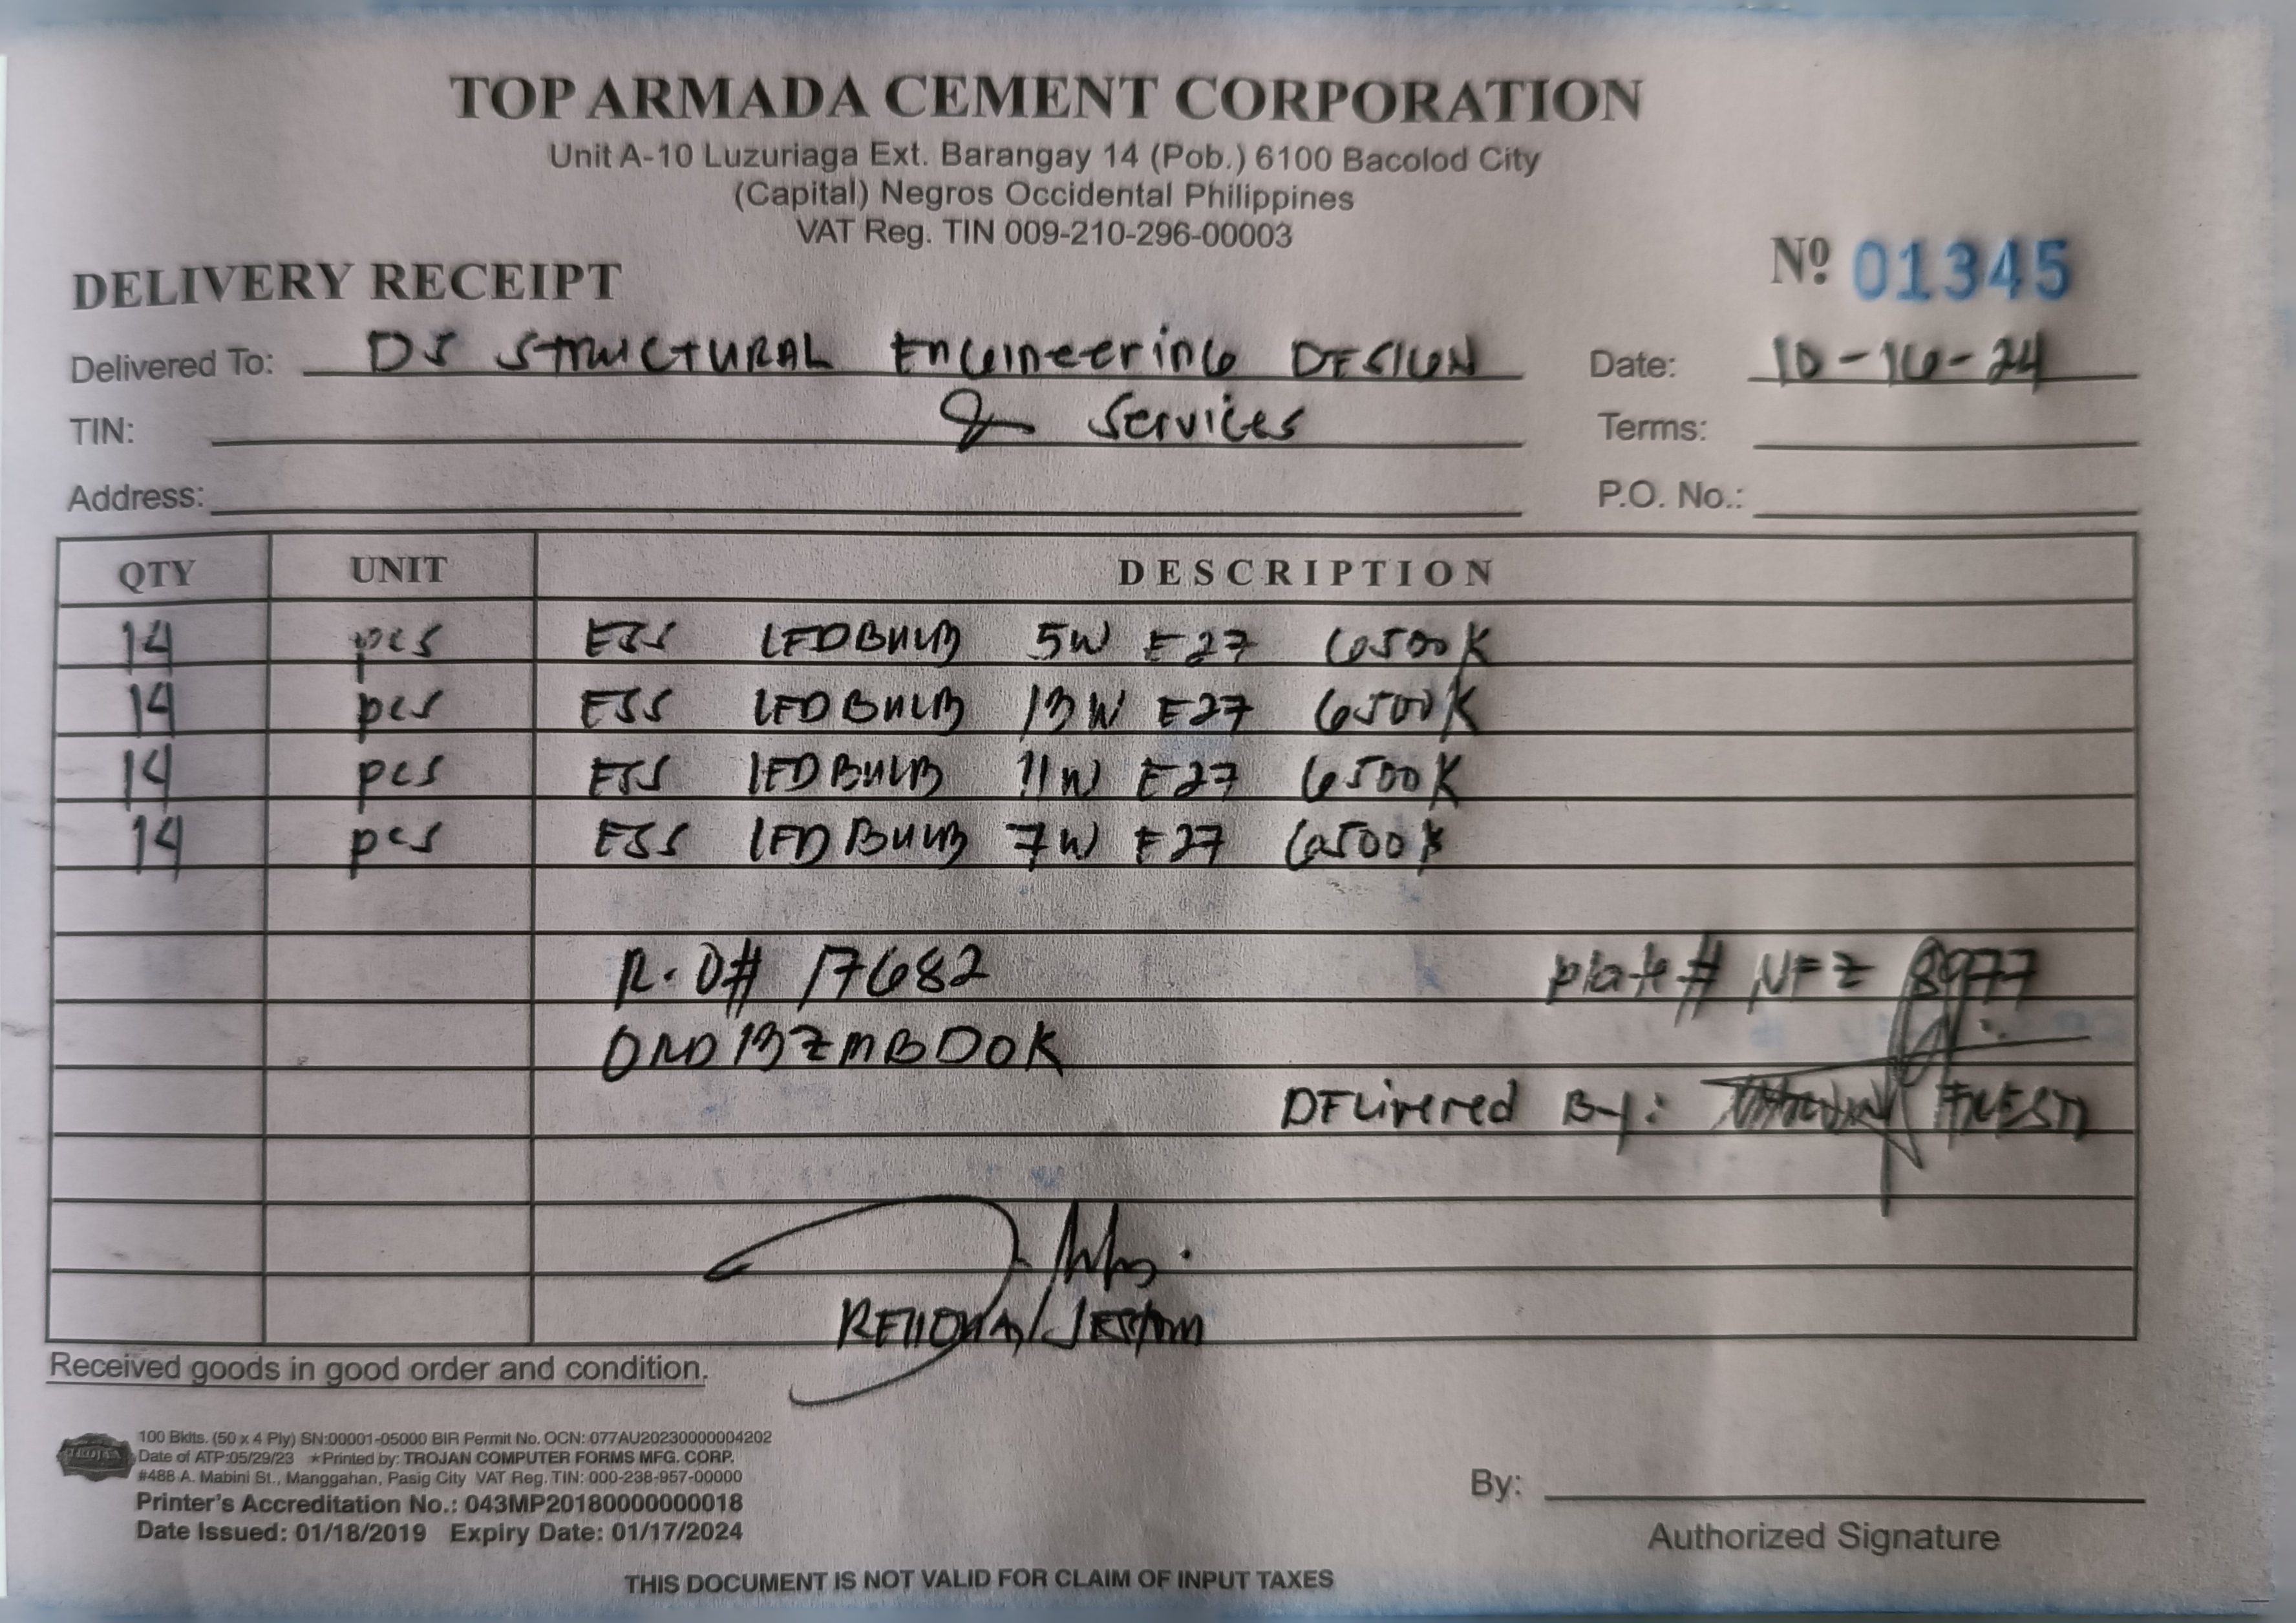 TOP ARMADA CEMENT CORPORATION
Unit A-10 Luzuriaga Ext. Barangay 14 (Pob.) 6100 Bacolod City
(Capital) Negros Occidental Philippines
VAT Reg. TIN 009-210-296-00003
DELIVERY RECEIPT Nº 01345
Delivered To: DS STRUCTURAL Engineering DESIGN Date: 10-16-24
TIN: & Services Terms:
Address: P.O. No.:
QTY UNIT DESCRIPTION
14 pcs ESS LEDBULB 5W E27 6500K
14 pcs ESS LEDBULB 13W E27 6500K
14 pcs ESS LEDBULB 11W E27 6500K
14 pcs ESS LEDBULB 7W E27 6500K
R.O# 17682 plate# NFZ 8977
ORD13ZMBDOK
DELivered By:
Received goods in good order and condition.
TROJAN
100 Bklts. (50 x 4 Ply) SN:00001-05000 BIR Permit No. OCN: 077AU20230000004202
Date of ATP:05/29/23 ★Printed by: TROJAN COMPUTER FORMS MFG. CORP.
#488 A. Mabini St., Manggahan, Pasig City VAT Reg. TIN: 000-238-957-00000
Printer's Accreditation No.: 043MP20180000000018
Date Issued: 01/18/2019 Expiry Date: 01/17/2024
By:
Authorized Signature
THIS DOCUMENT IS NOT VALID FOR CLAIM OF INPUT TAXES